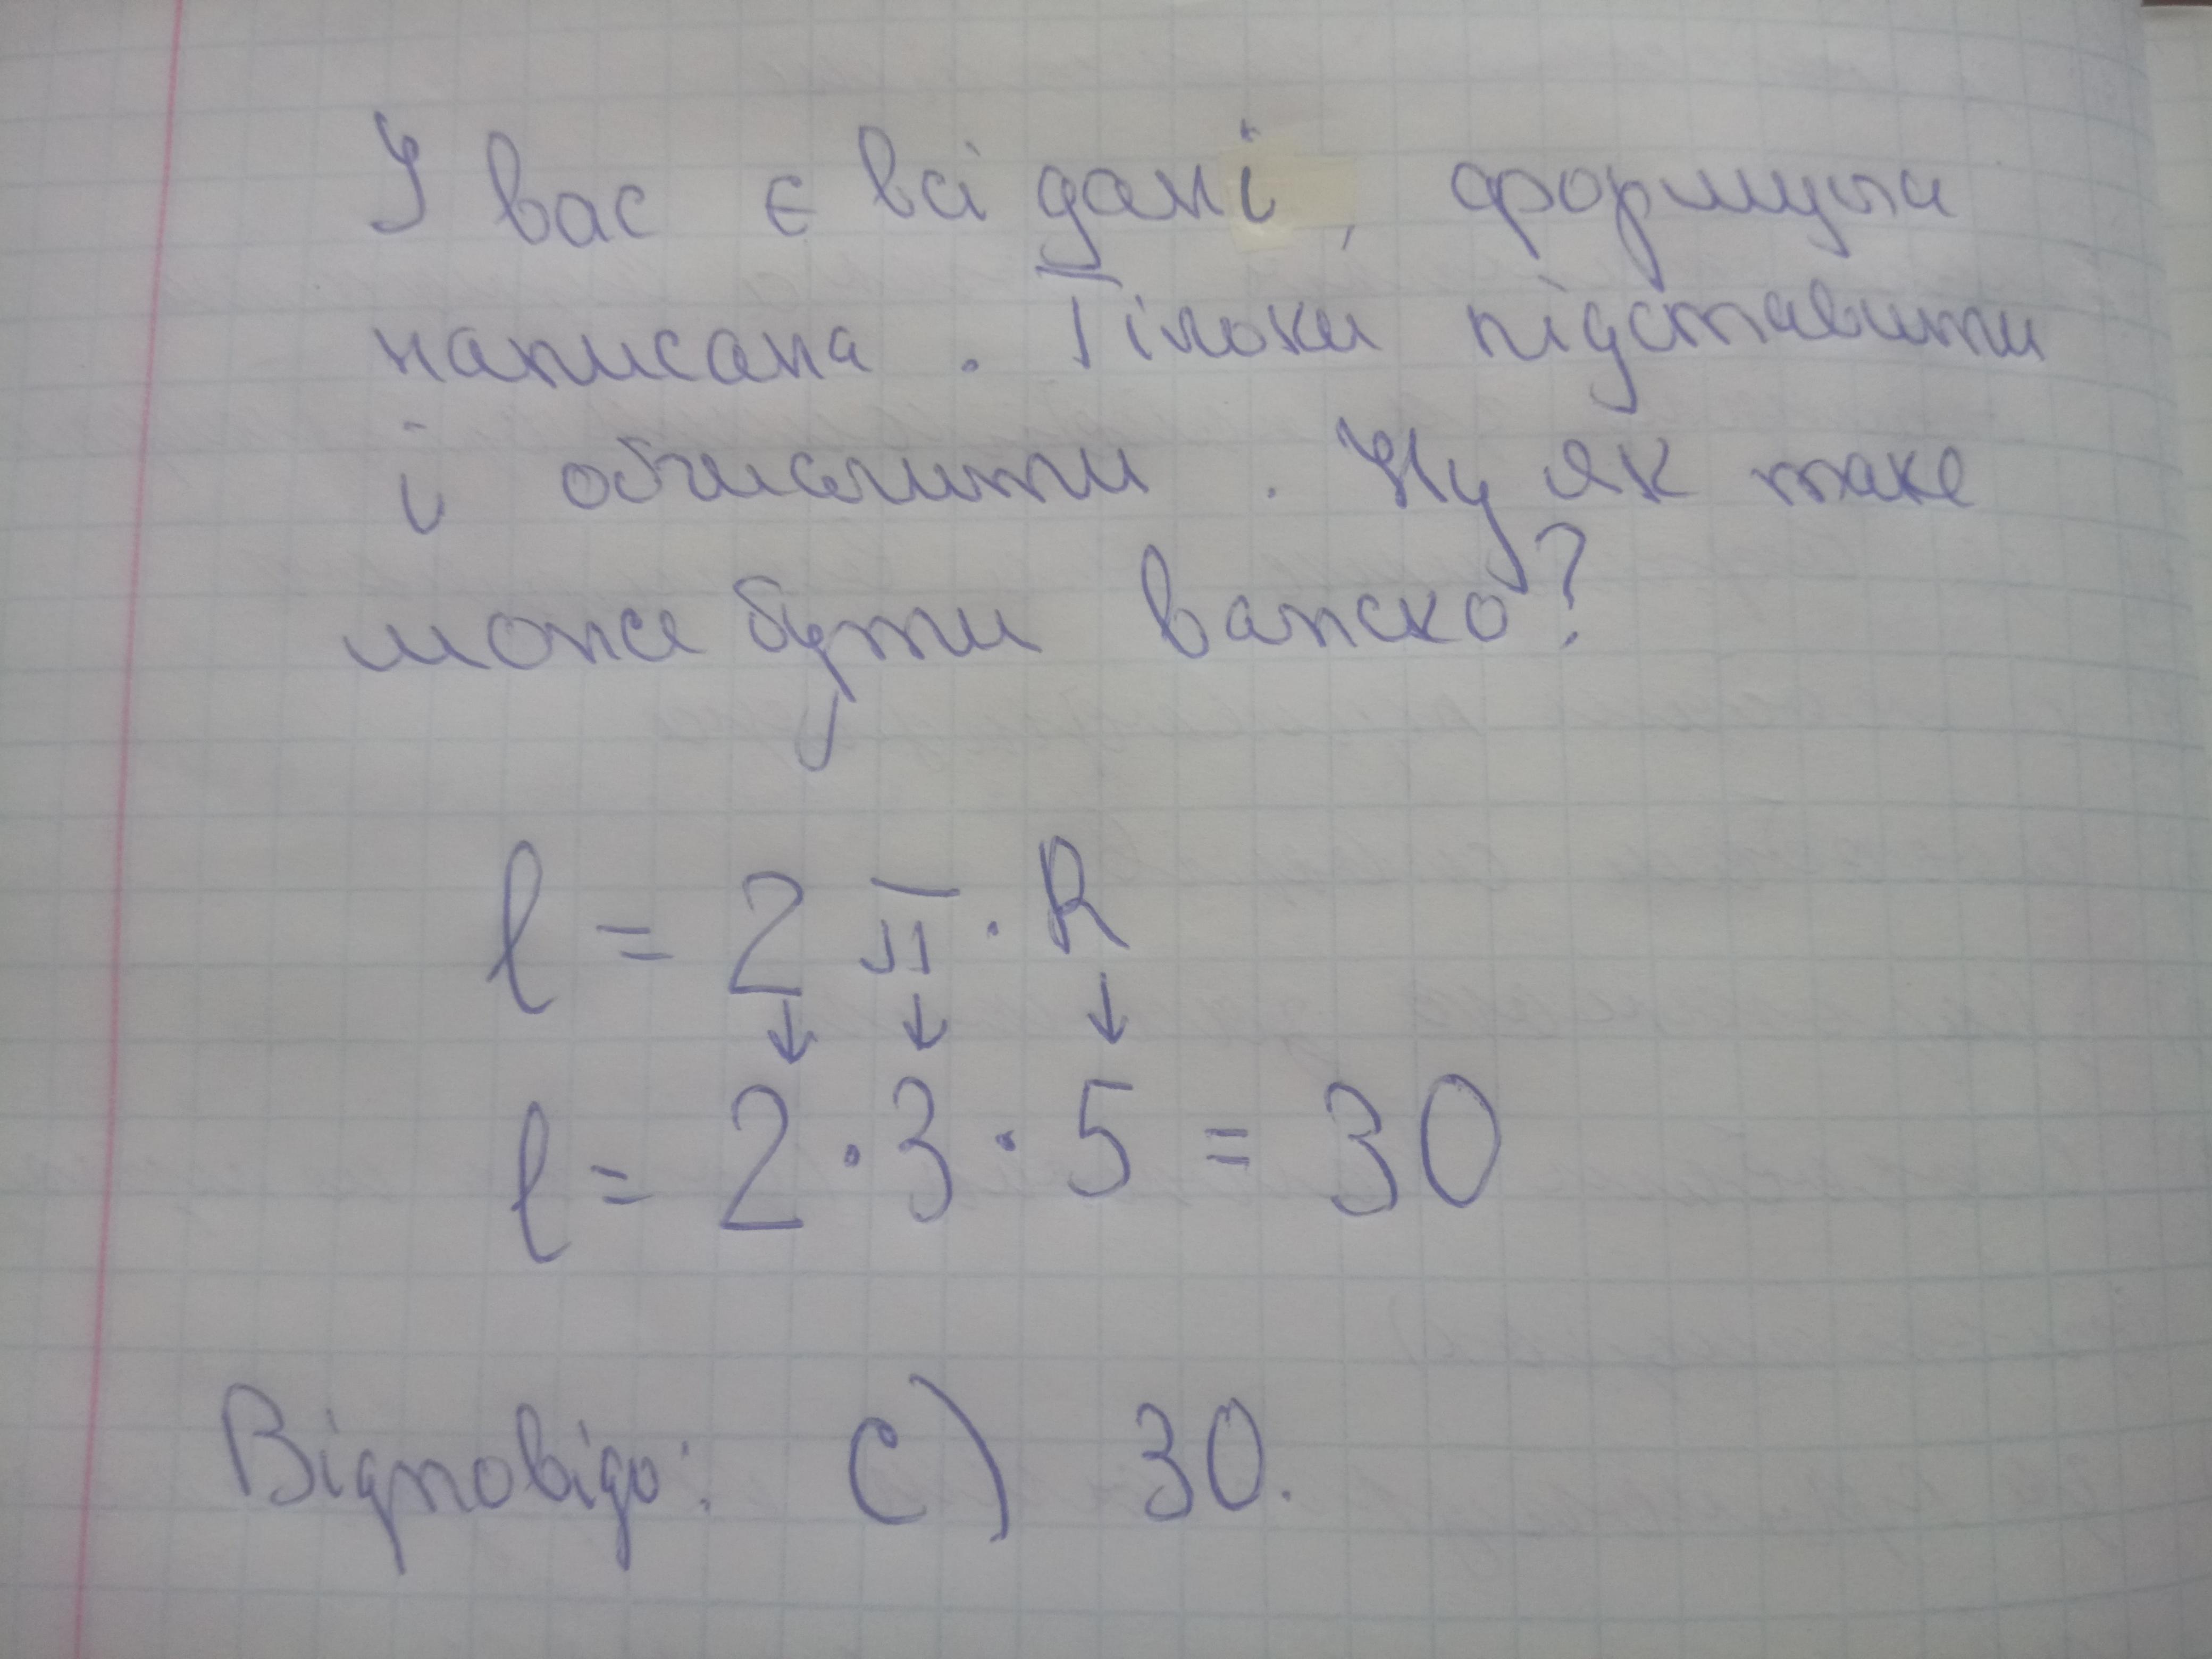 У вас є всі дані, формула
написана. Тільки підставити
і обчислити. Ну як таке
може бути важко?
l = 2 π · R
↓ ↓ ↓
l = 2 · 3 · 5 = 30
Відповідь: C) 30.